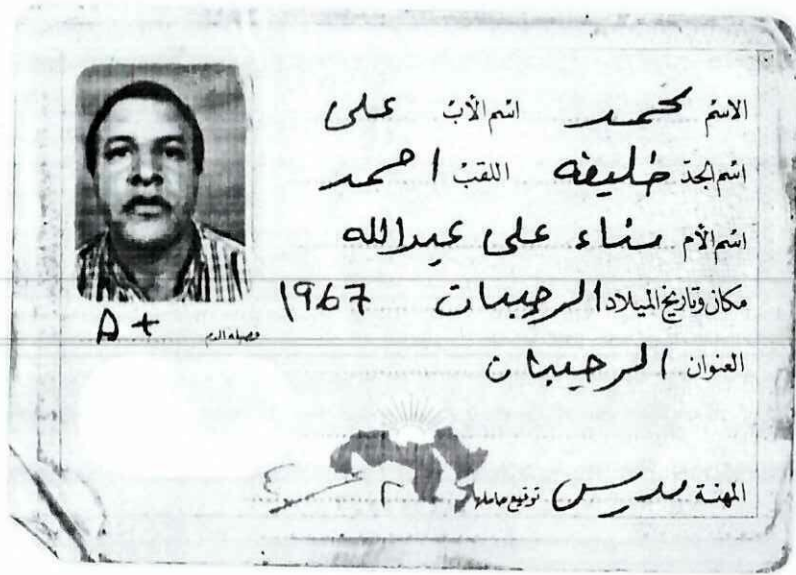 الاسم محمد اسم الأب على
اسم الجد خليفه اللقب احمد
اسم الأم مناء على عبدالله
مكان وتاريخ الميلاد الرحيبات 1967
A+ فصيلة الدم
العنوان الرحيبات
المهنة مدرس توقيع حاملها